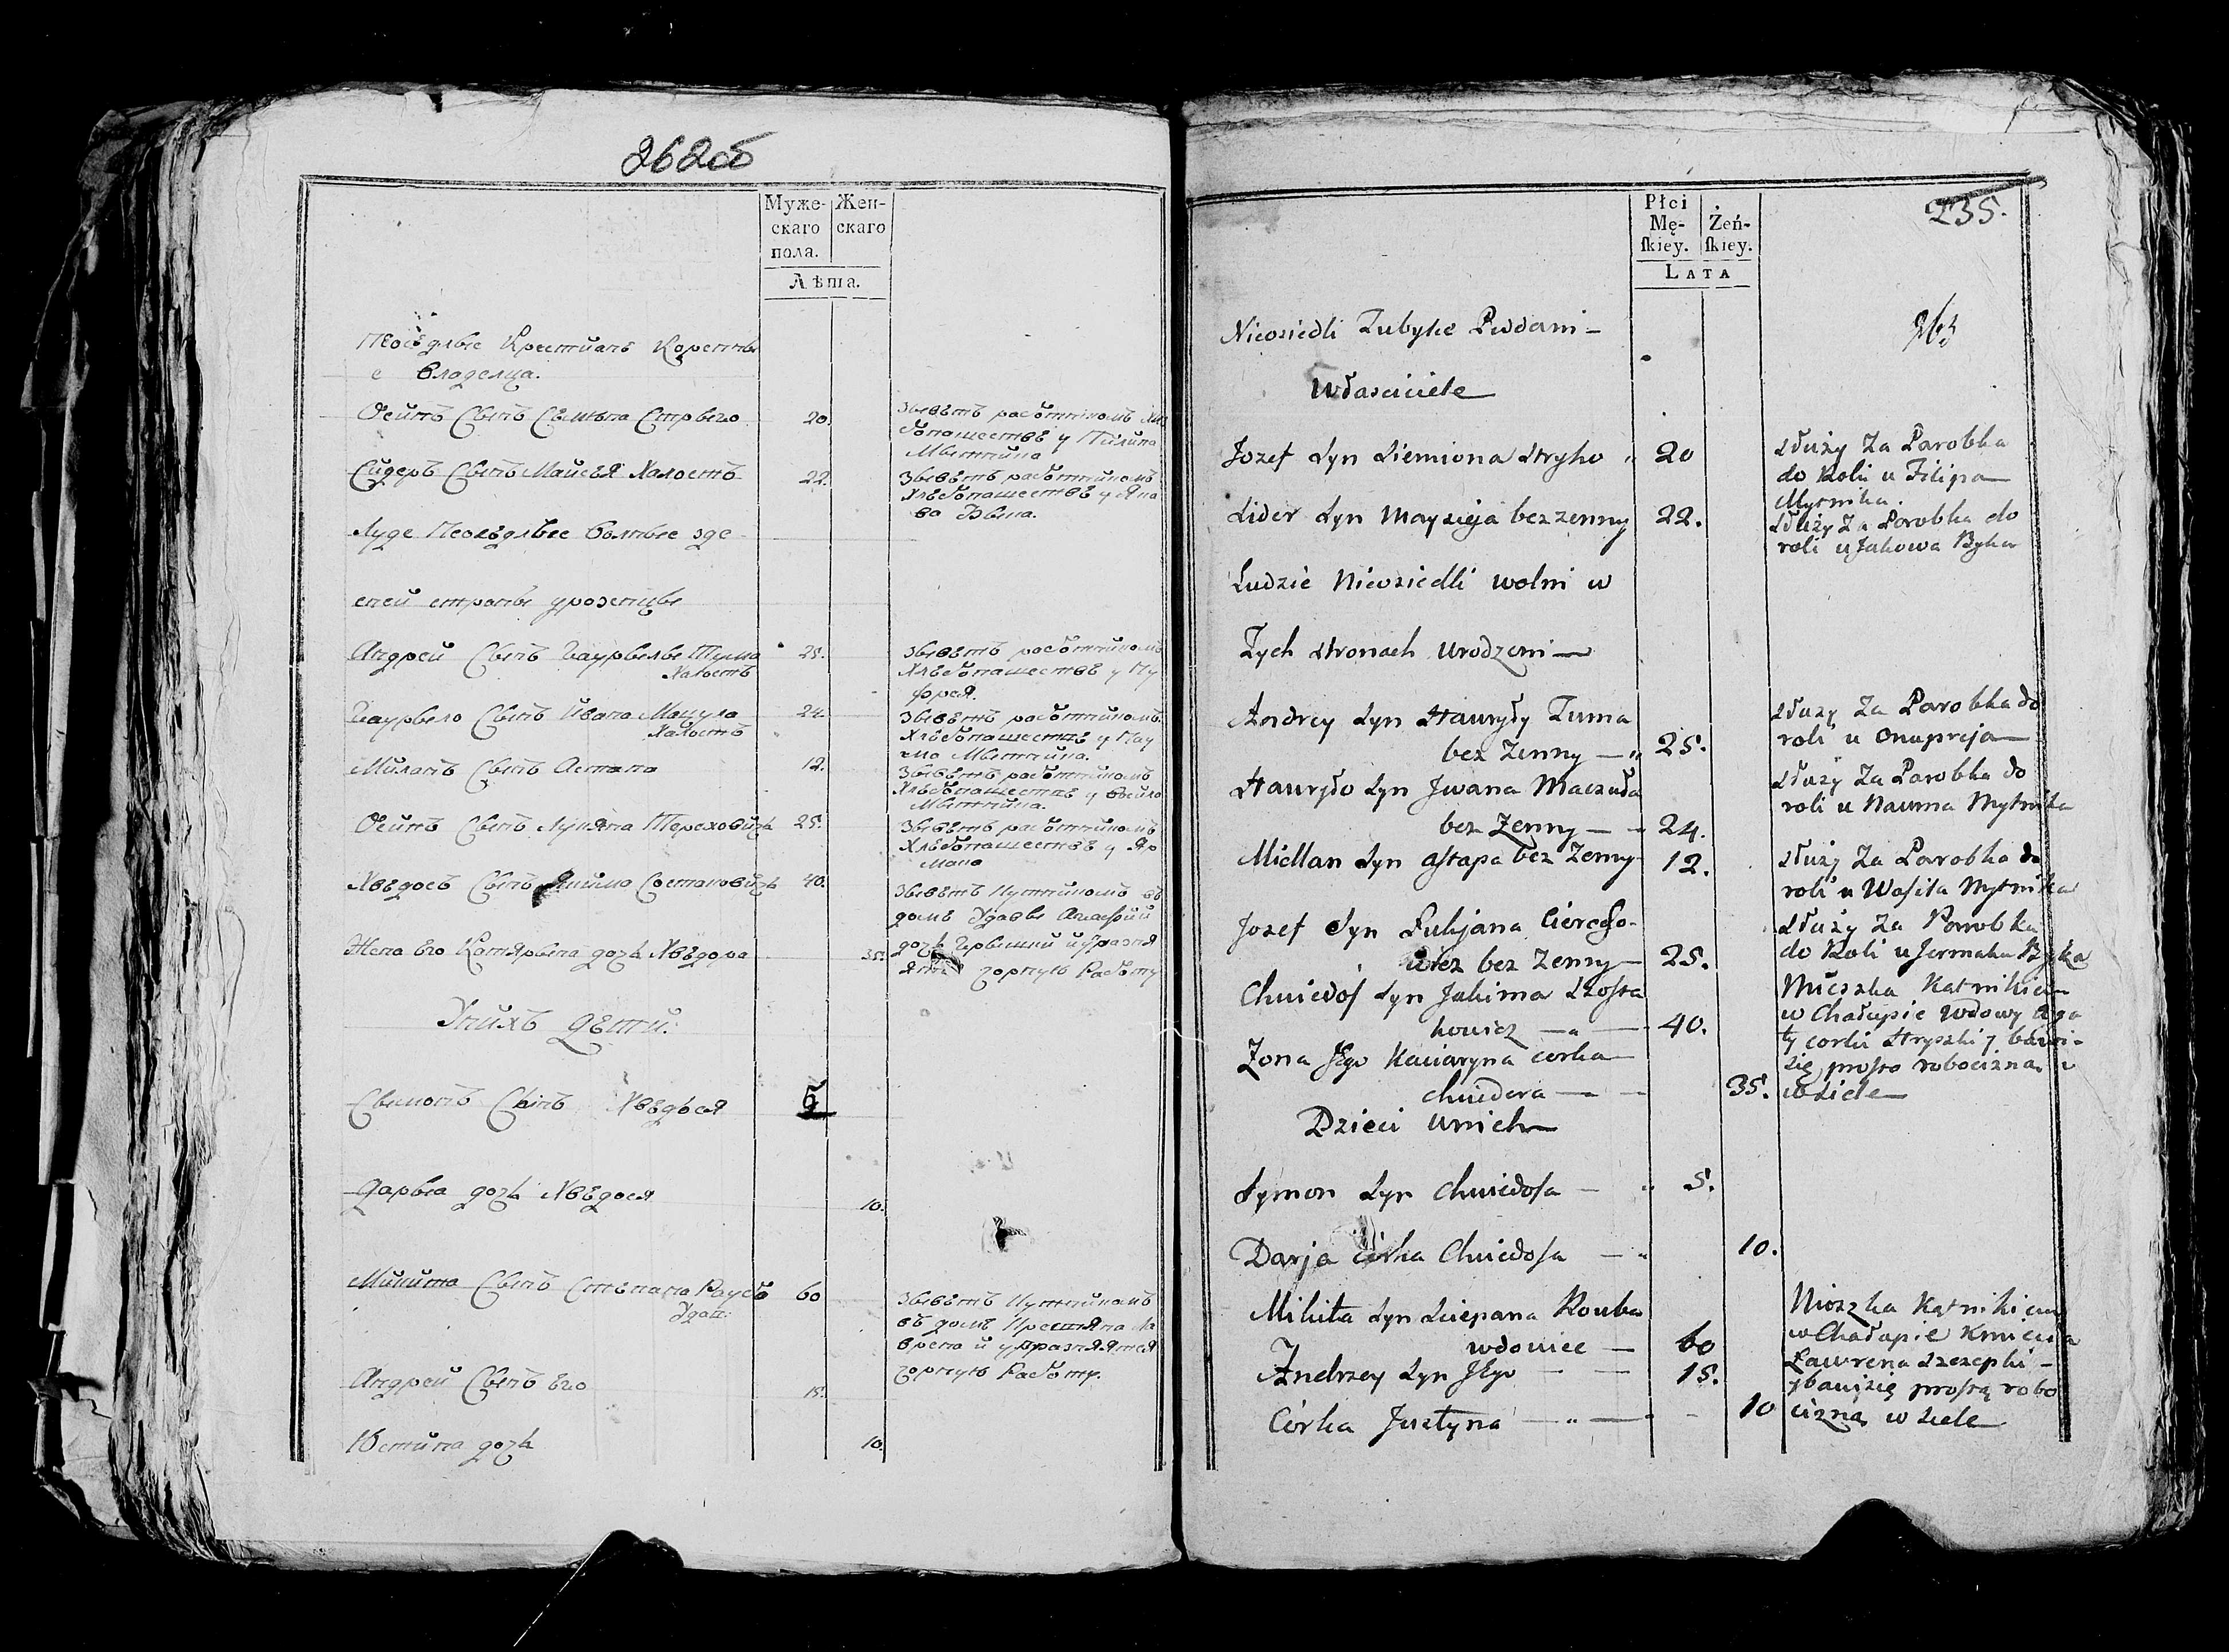 262об
Муже- Жен-
скаго скаго
пола.
Лѣта.
Неосѣдлые Крестиане Коренные
владелца.
Осипъ Сынъ Семена Стрыго 20.
Живетъ работникомъ
хлебопашестве у Пилипа
Мытника
Сидеръ Сынъ Майсѣя Халостъ 22.
Живетъ работникомъ
Хлебопашестве у Яко
ва Быка.
Люде Неоседлые вольные зде
шней стороны уроженцы
Андрей Сынъ Гаурылы Тума 25.
Халостъ
Живетъ работникомъ
Хлебопашестве у Ну
фрея.
Гаурыло Сынъ Ивана Мацула 24.
Халостъ
Живетъ работникомъ
Хлебопашестве у Нау
ма Мытника.
Миланъ Сынъ Астапа 12.
Живетъ работникомъ
Хлебопашестве у Васила
Мытника.
Осипъ Сынъ Лукяна Тереховичъ 25.
Живетъ работникомъ
Хлебопашестве у Яр
мака
Хведосъ Сынъ Якима Состаковичъ 40.
Живетъ Кутникомъ въ
доме Удавы Агафии
дочь Грышки и упражня
ятся чорную Работу
Жена Его Катярына дочь Хведора 35.
У нихъ дети:
Сымонъ Сынъ Хведося 5
Дарыа дочь Хведося 10.
Микита Сынъ Степана Рауба 60
Удав:
Живетъ Кутникомъ
въ доме Крестяна Ла
врена и упражняятся
чорную Работу.
Андрей Сынъ Его 15.
Юстина дочь 10.
235.
Płci
Mę- Żeń-
ſkiey. ſkiey.
LATA
263
Nieosiedli Tubylce Poddani —
Własciciele
Jozef Syn Siemiona Stryho 20
Służy Za Parobka
do Roli u Filipa
Mytnika.
Sider Syn Maysieja bez zenny 22.
Służy Za Parobka do
roli u Jakowa Byka
Ludzie Nieosiedli wolni w
Tych Stronach Urodzeni —
Andrey Syn Hauryły Tuma
bez Zenny — 25.
Służy Za Parobka do
roli u Onupreja
Hauryło Syn Jwana Maczuła
bez Zenny — 24.
Służy Za Parobka do
roli u Nauma Mytnika
Miellan Syn Astapa bez Zenny 12.
Służy Za Parobka do
roli u Wasila Mytnika
Jozef Syn Łukjana Cierecho-
wicz bez Zenny — 25.
Służy Za Parobka
do Roli u Jermaka Byka
Chwiedos Syn Jakima Szosta
kowicz — 40.
Mieszka Kątnikiem
w Chałupie Wdowy Aga
ty corki Hryszki y bawi
się prosto robocizną
w siele
Zona Jego Kaciaryna corka
chwedora — 35.
Dzieci Unich
Symon Syn Chwiedosa — 5.
Darja córka Chwiedosa — 10.
Mikita Syn Sciepana Rouba
wdowiec — 60
Mioszka Kątnikiem
w Chałupie Kmiecia
Ławrena Szczepki —
y bawi się prostą robo
cizną w siele
Andrzey Syn Jego — 15.
Córka Justyna — 10